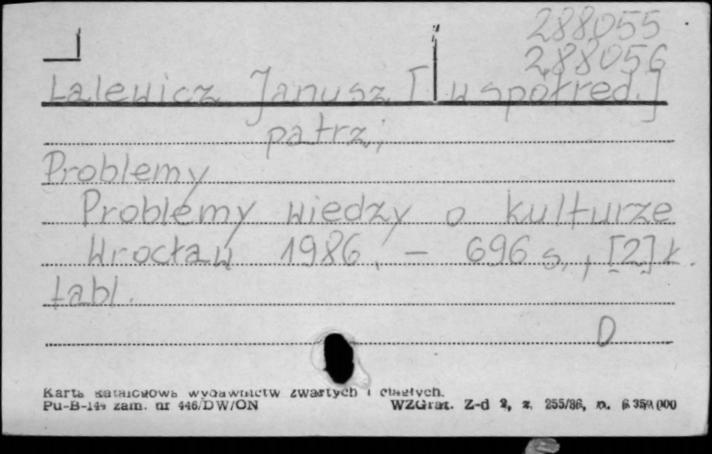 288055
288056
Lalewicz Janusz [współred.]
patrz:
Problemy
Problemy wiedzy o kulturze
Wrocław 1986. – 696 s., [2] k.
tabl.
D
Karta katalogowa wydawnictw zwartych i ciągłych.
Pu-B-144 zam. nr 446/DW/ON WZGraf. Z-d 2, z. 255/86, n. 350 000